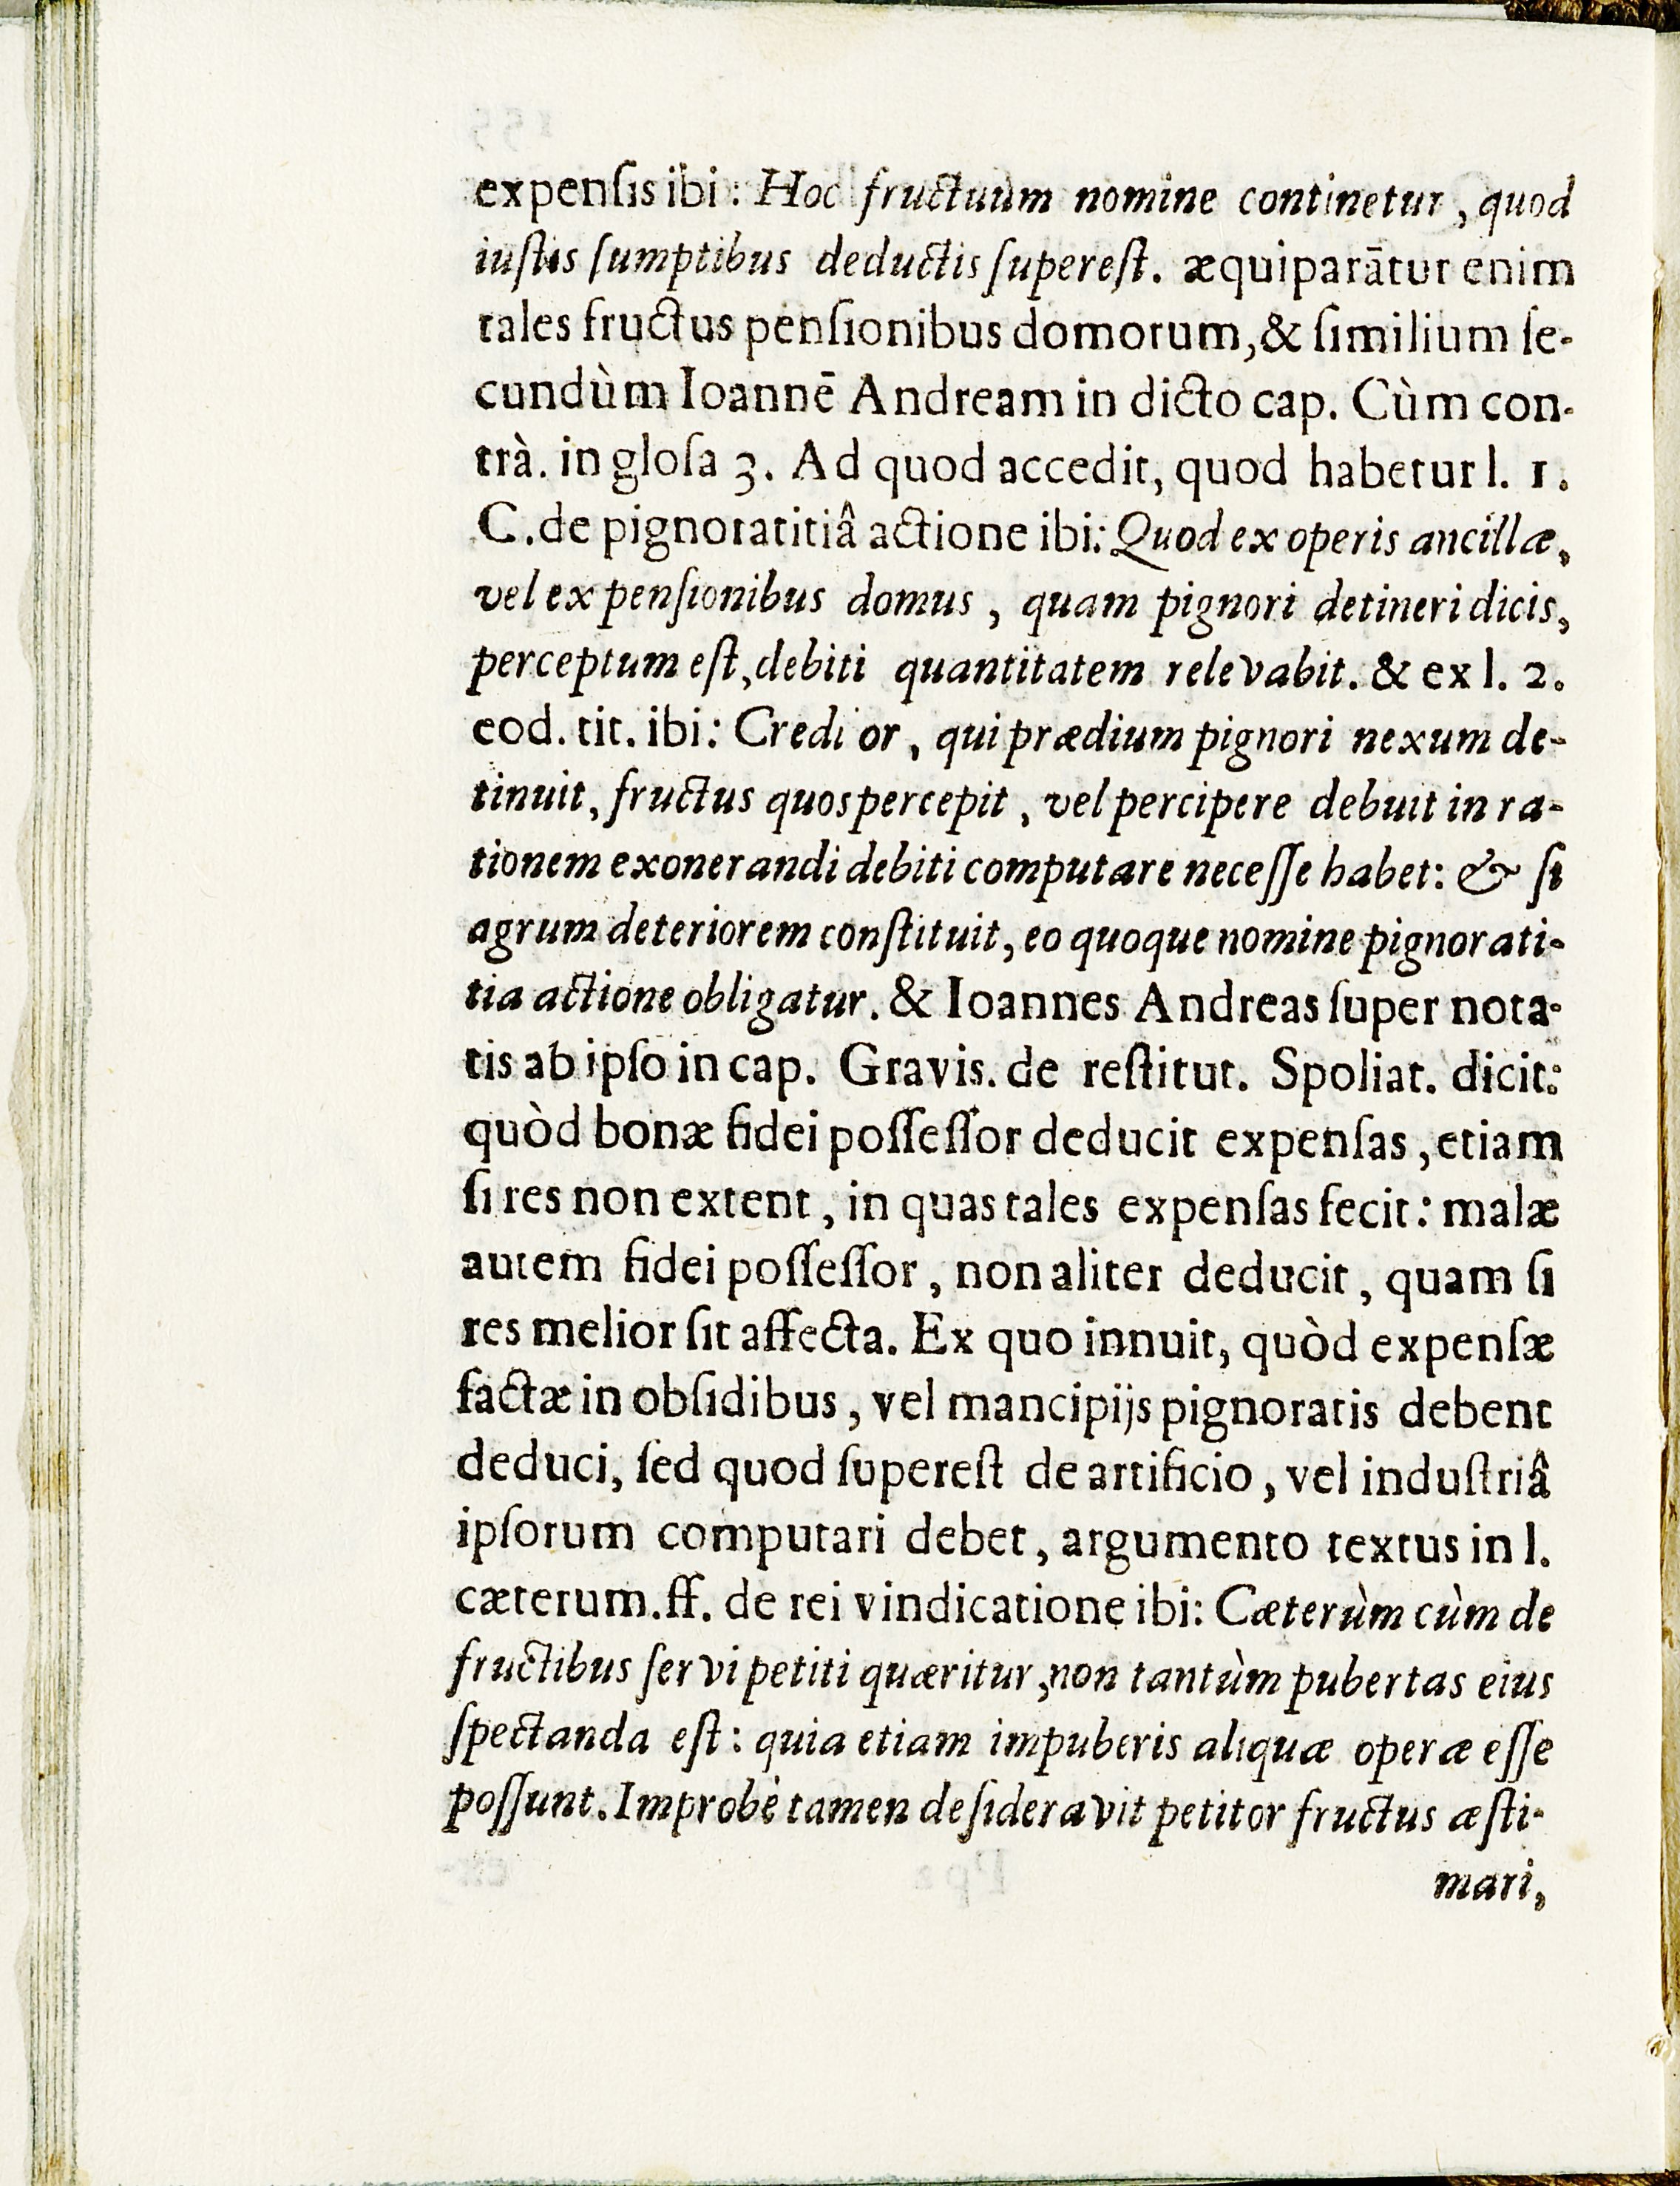 expenſis ibi: Hoc fructuum nomine continetur, quod
iuſtis ſumptibus deductis ſupereſt. æquiparātur enim
tales fructus penſionibus domorum, & ſimilium ſe-
cundùm Ioannē Andream in dicto cap. Cùm con-
trà. in gloſa 3. Ad quod accedit, quod habetur l. 1.
C. de pignoratitiâ actione ibi: Quod ex operis ancillæ,
vel ex penſionibus domus, quam pignori detineri dicis,
perceptum eſt, debiti quantitatem relevabit. & ex l. 2.
eod. tit. ibi: Credi or, qui prædium pignori nexum de-
tinuit, fructus quos percepit, vel percipere debuit in ra-
tionem exonerandi debiti computare neceſſe habet: & ſi
agrum deteriorem conſtituit, eo quoque nomine pignorati-
tia actione obligatur. & Ioannes Andreas ſuper nota-
tis ab ipſo in cap. Gravis. de reſtitut. Spoliat. dicit:
quòd bonæ fidei poſſeſſor deducit expenſas, etiam
ſi res non extent, in quas tales expenſas fecit: malæ
autem fidei poſſeſſor, non aliter deducit, quam ſi
res melior ſit affecta. Ex quo innuit, quòd expenſæ
factæ in obſidibus, vel mancipijs pignoratis debent
deduci, ſed quod ſupereſt de artificio, vel induſtriâ
ipſorum computari debet, argumento textus in l.
cæterum. ff. de rei vindicatione ibi: Cæterùm cùm de
fructibus ſervi petiti quæritur, non tantùm pubertas eius
ſpectanda eſt: quia etiam impuberis aliquæ operæ eſſe
poſſunt. Improbè tamen deſideravit petitor fructus æſti-
mari,